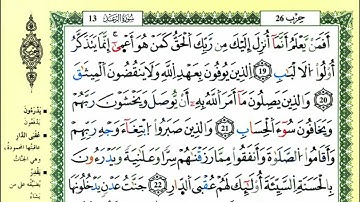 13 سُورَةُ الرَّعْدِ حِزْبُ 26
أَفَمَن يَعْلَمُ أَنَّمَا أُنزِلَ إِلَيْكَ مِن رَّبِّكَ الْحَقُّ كَمَنْ هُوَ أَعْمَىٰ إِنَّمَا يَتَذَكَّرُ
أُوْلُوا۟ الْأَلْبَٰبِ 19 الَّذِينَ يُوفُونَ بِعَهْدِ اللَّهِ وَلَا يَنقُضُونَ الْمِيثَٰقَ
20 وَالَّذِينَ يَصِلُونَ مَا أَمَرَ اللَّهُ بِهِ أَن يُوصَلَ وَيَخْشَوْنَ رَبَّهُمْ
وَيَخَافُونَ سُوٓءَ الْحِسَابِ 21 وَالَّذِينَ صَبَرُوا۟ ابْتِغَآءَ وَجْهِ رَبِّهِمْ
وَأَقَامُوا۟ الصَّلَوٰةَ وَأَنفَقُوا۟ مِمَّا رَزَقْنَٰهُمْ سِرًّا وَعَلَانِيَةً وَيَدْرَءُونَ
بِالْحَسَنَةِ السَّيِّئَةَ أُوْلَٰٓئِكَ لَهُمْ عُقْبَى الدَّارِ 22 جَنَّٰتُ عَدْنٍ يَدْخُلُونَهَا
يَدْرَءُونَ
يَدْفَعُونَ
عُقْبَى الدَّارِ
عاقبتها المحمودة،
وهي الجنات